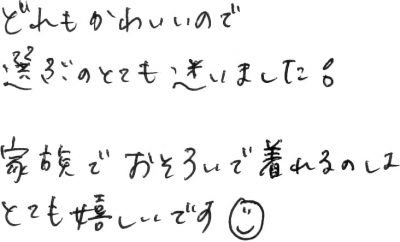 どれもかわいいので
選ぶのとても迷いました!
家族でおそろいで着れるのは
とても嬉しいです☺